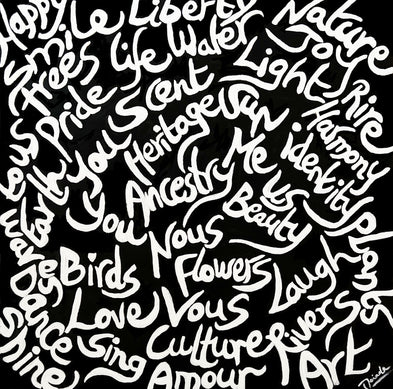 Happy Le Liberty Nature
Smi Trees Life Water Joy
Pride Scent Light Rire
You Heritage Sun Harmony
Earth Me identity
Ancestry Us
You Beauty
Nous Plants
Birds Flowers Laugh
Dance Love Vous Rivers
Shine Sing Culture
Amour Art